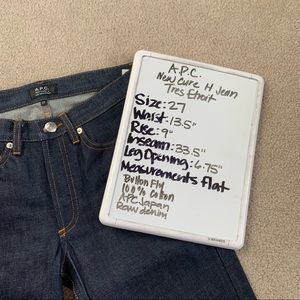 A.P.C.
A.P.C.
New Cure H Jean
Tres Etroit
Size: 27
Waist: 13.5"
Rise: 9"
Inseam: 33.5"
Leg Opening: 6.75"
Measurements Flat
Button Fly
100% Cotton
APC Japan
Raw denim